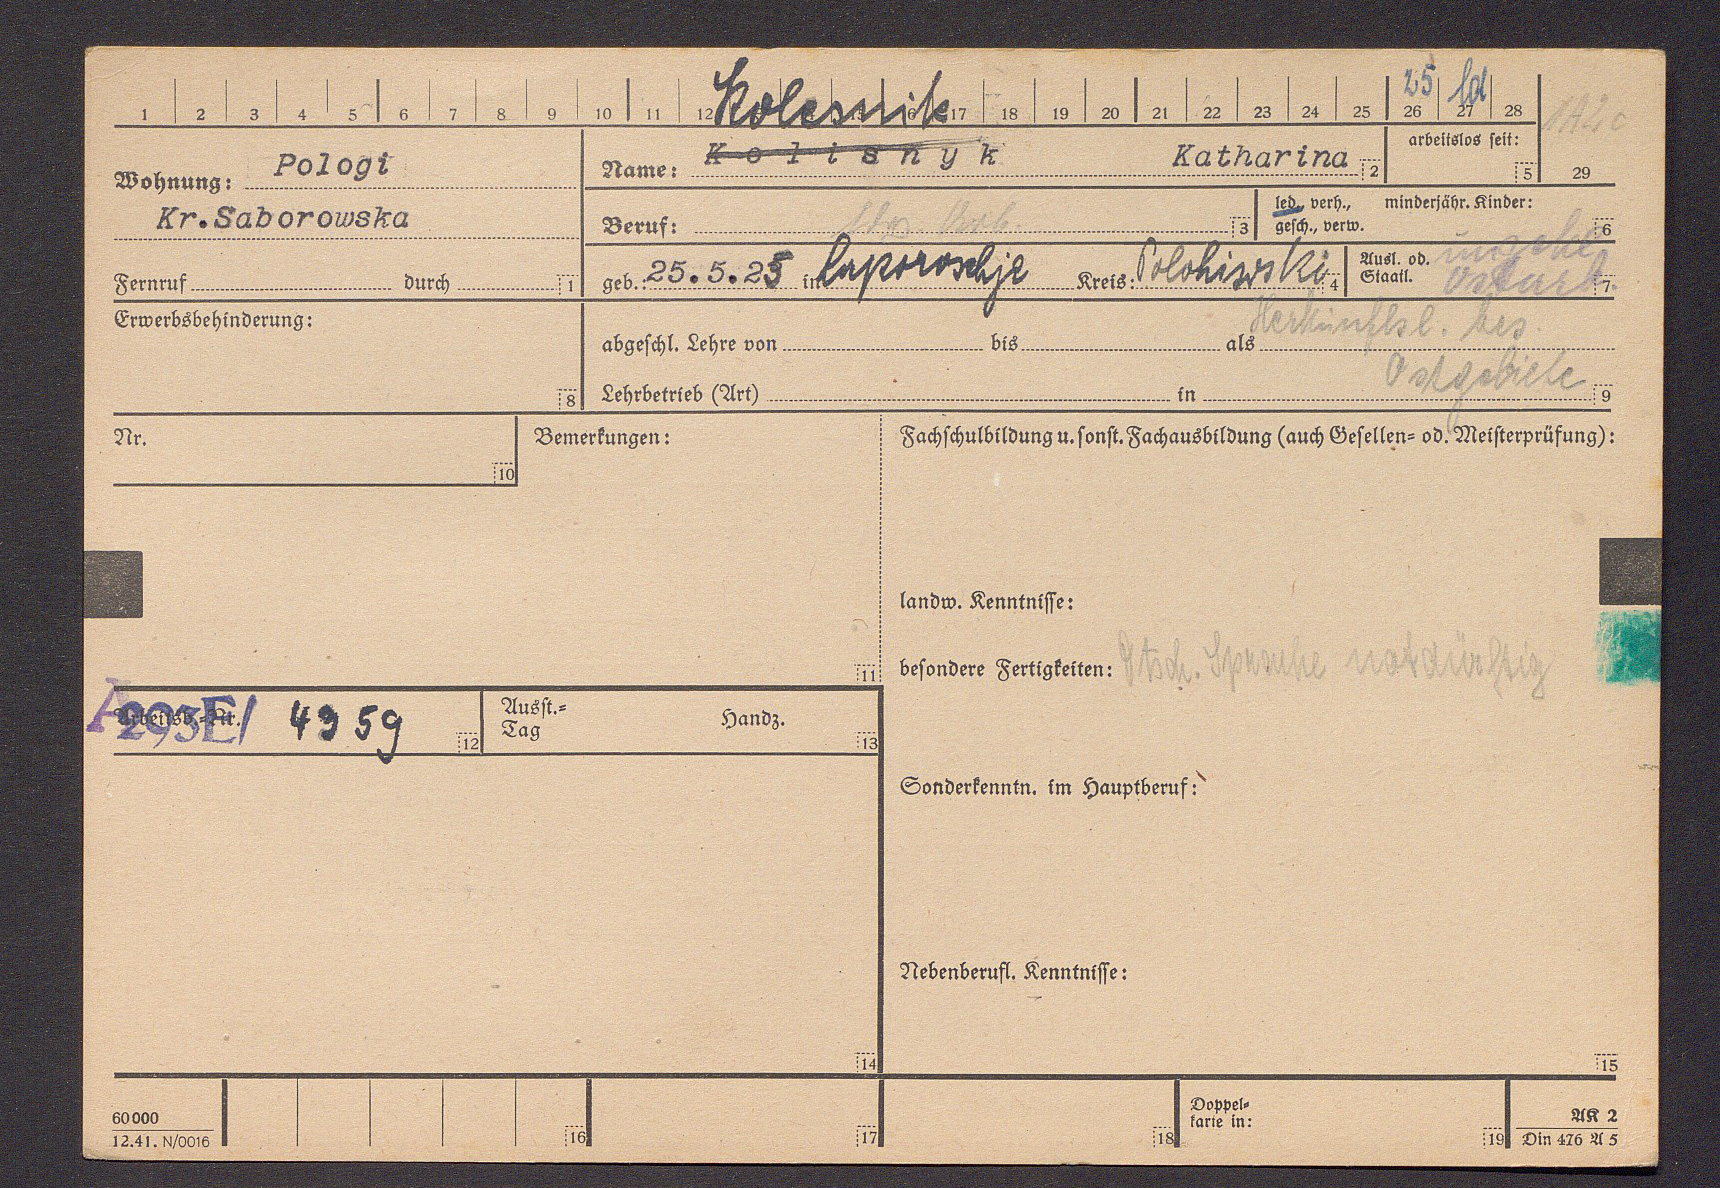 25 ld
1 2 3 4 5 6 7 8 9 10 11 12 16 17 18 19 20 21 22 23 24 25 26 27 28
Kolesnik
arbeitslos seit:
Wohnung: Pologi
Name: Kolisnyk Katharina 2 5 29
Kr.Saborowska
led., verh., minderjähr. Kinder:
Beruf: 3 gesch., verw. 6
Fernruf durch 1
geb.: 25.5.25 in Saporoschje Kreis: Polohiwski 4
Ausl. od. Staatl. ungekl. Ostarb. 7
Erwerbsbehinderung:
Herkunftsl. bes.
abgeschl. Lehre von bis als
Ostgebiete
8 Lehrbetrieb (Art) in 9
Nr. 10
Bemerkungen:
Fachschulbildung u. sonst. Fachausbildung (auch Gesellen= od. Meisterprüfung):
landw. Kenntnisse:
11
besondere Fertigkeiten: Dtsch. Sprache notdürftig
Arbeitsb.=Nr. A 293E/ 4959 12
Ausst.= Tag Handz. 13
Sonderkenntn. im Hauptberuf:
Nebenberufl. Kenntnisse:
14 15
60000
12.41. N/0016
16 17 18
Doppel=
karte in: 19
AK 2
Din 476 A 5